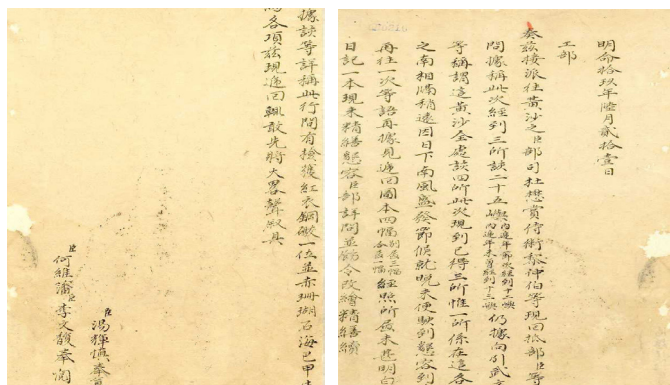 明命拾玖年陸月貳拾壹日
工部
奏茲接派往黃沙之臣部司杜懋賞侍衛黎仲伯等現回抵部臣等
問據稱此次經到三所該二十五嶼內逓年節次經到十二嶼內逓年未曾經到十三嶼仍據向引武文
等稱謂這黃沙全處該四所此次現到已得三所惟一所係在這各
之南相隔稍遠因日下南風盛發節候就晚未便駛到懇容到
再往一次等語再據見遞回圖本四幅別繪三幅合繪一幅經照所庶未甚明白
日記一本現未精繕懇容臣部詳問並飭令改繪精繕續
據該等詳稱此行間有撿獲紅衣銅礮一位並赤珊瑚石海巴甲
各項茲現遞回輒敢先將大畧聲敘具
臣湯輝慎奉
臣何維藩臣李文馥奉閱